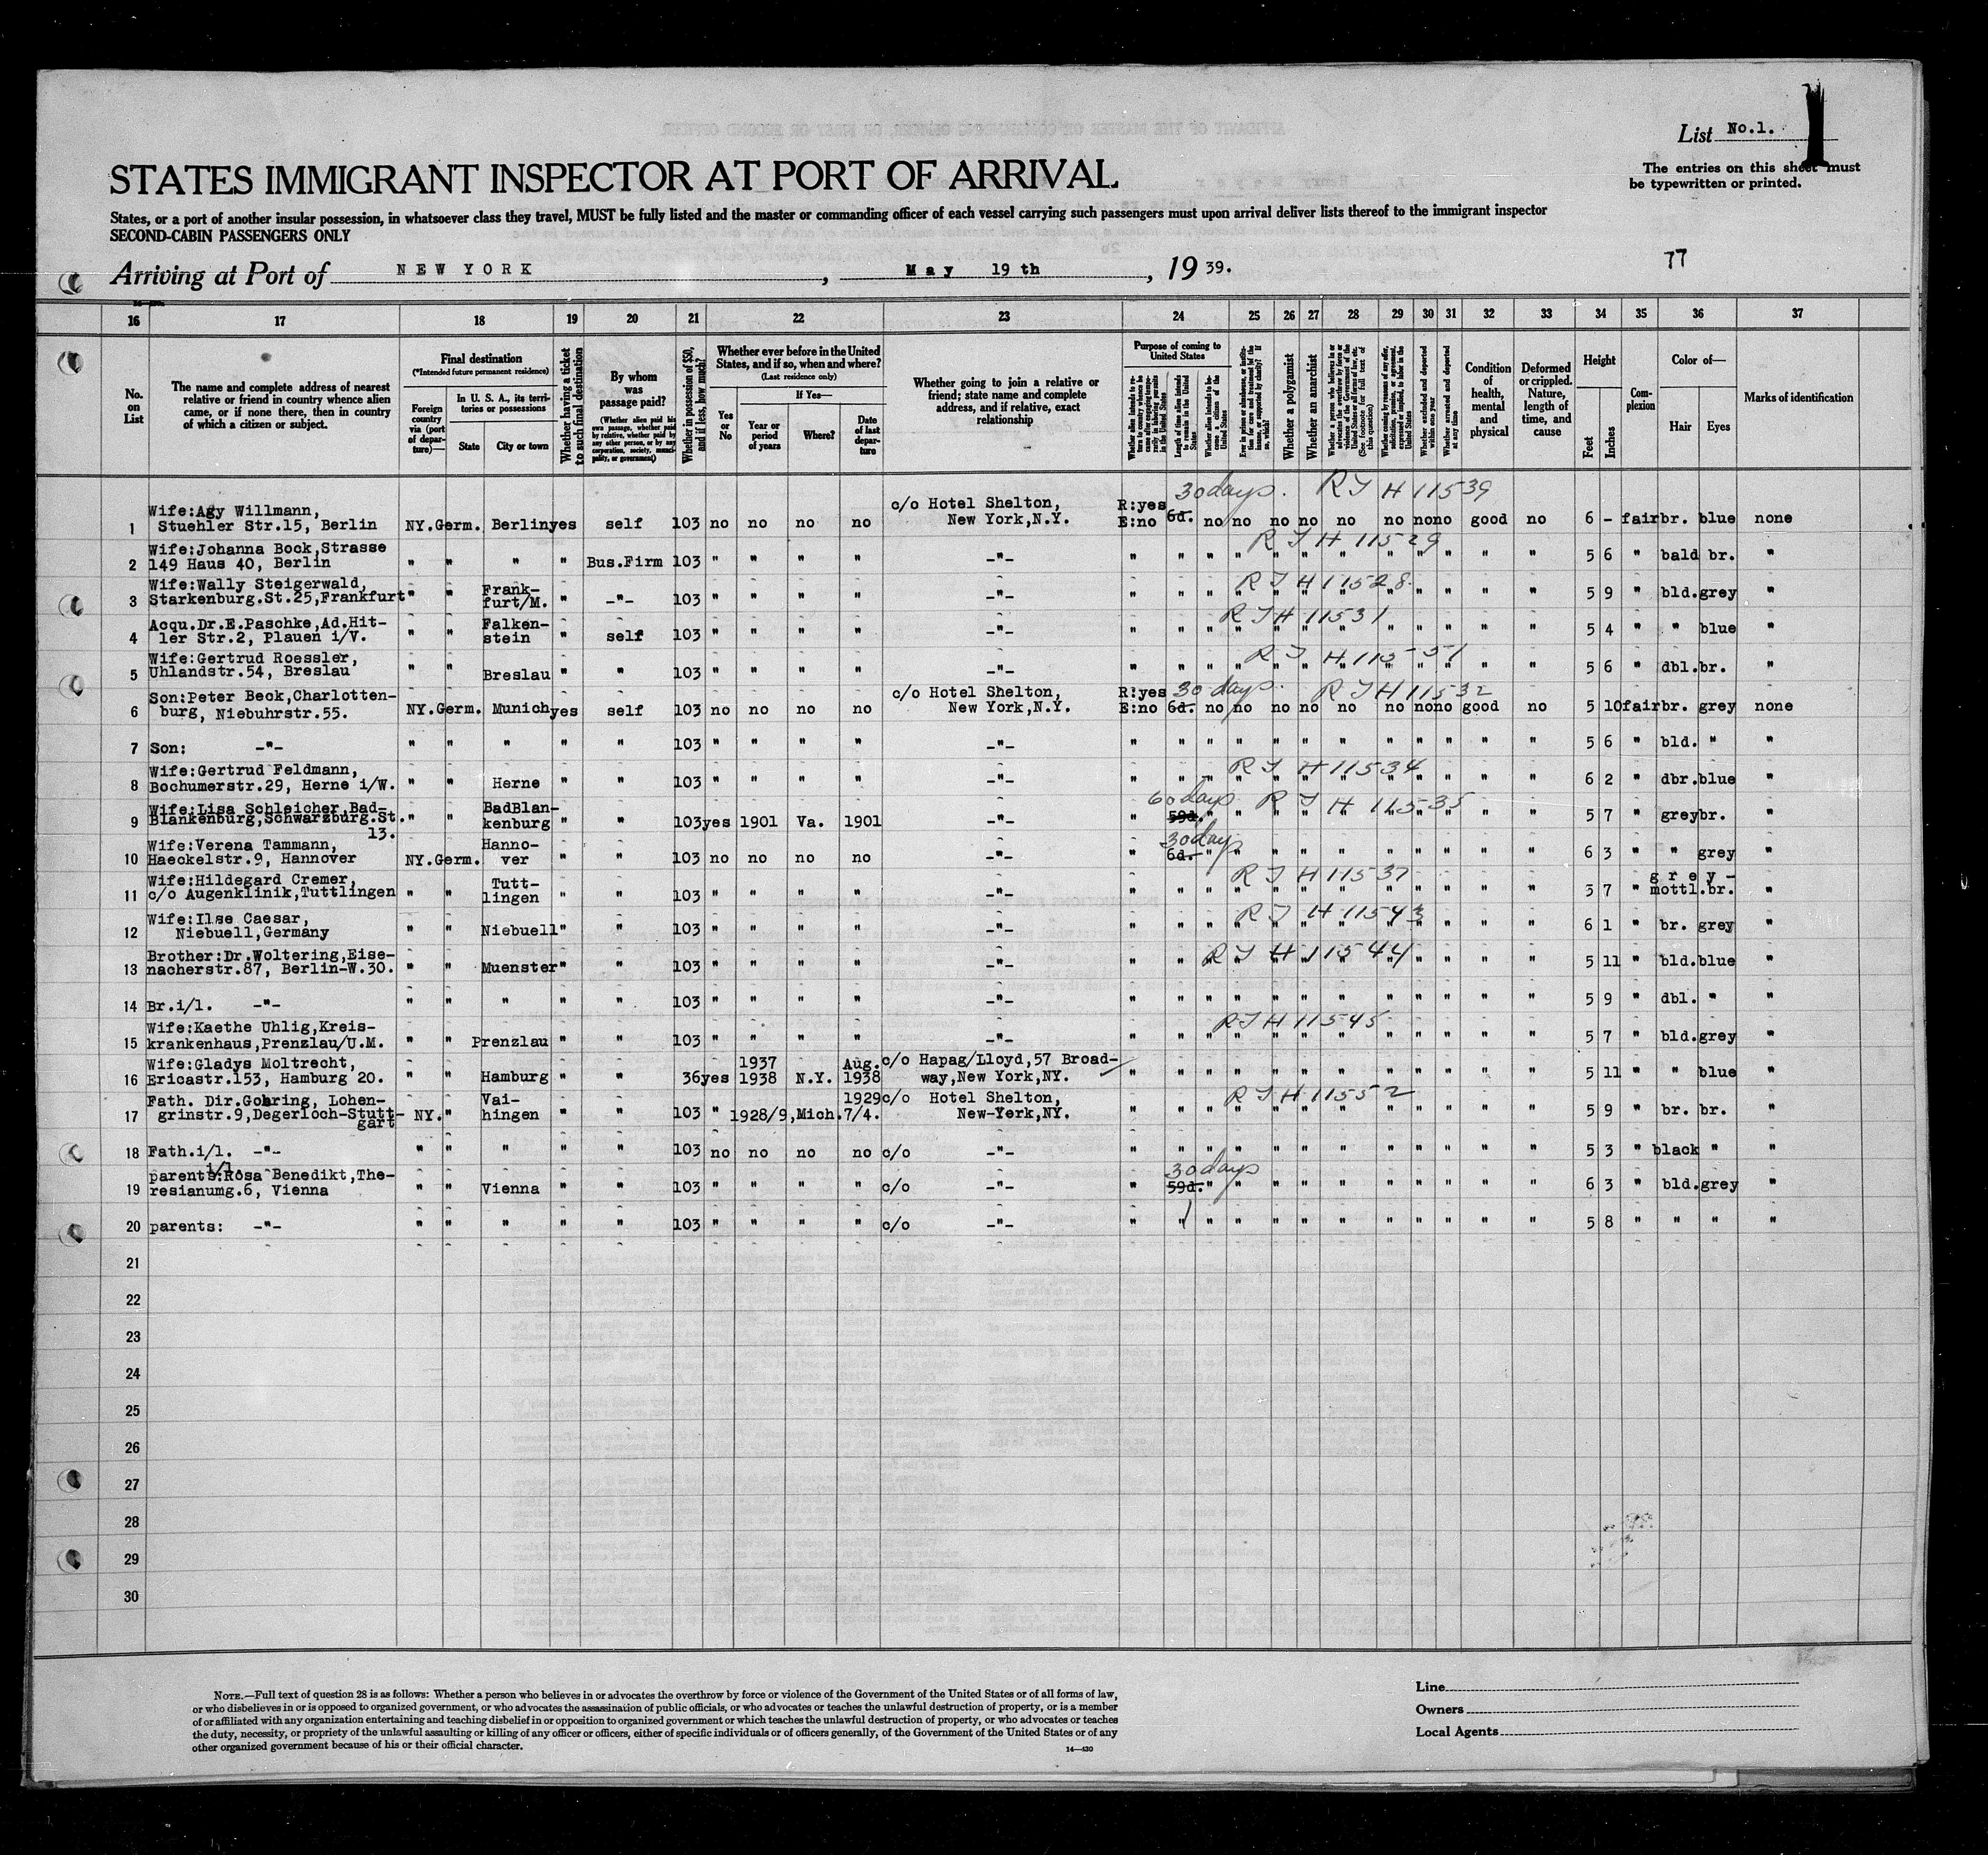 List No.1.
1
The entries on this sheet must
be typewritten or printed.
STATES IMMIGRANT INSPECTOR AT PORT OF ARRIVAL
States, or a port of another insular possession, in whatsoever class they travel, MUST be fully listed and the master or commanding officer of each vessel carrying such passengers must upon arrival deliver lists thereof to the immigrant inspector
SECOND-CABIN PASSENGERS ONLY
77
Arriving at Port of NEW YORK, May 19th, 19 39.
16 17 18 19 20 21 22 23 24 25 26 27 28 29 30 31 32 33 34 35 36 37
No. on List
The name and complete address of nearest relative or friend in country whence alien came, or if none there, then in country of which a citizen or subject.
Final destination
(*Intended future permanent residence)
Foreign country via (port of departure)—
In U. S. A., its territories or possessions
State
City or town
Whether having a ticket to such final destination
By whom was passage paid?
(Whether alien paid his own passage, whether paid by relative, whether paid by any other person, or by any corporation, society, municipality, or government)
Whether in possession of $50, and if less, how much?
Whether ever before in the United States, and if so, when and where?
(Last residence only)
Yes or No
If Yes—
Year or period of years
Where?
Date of last departure
Whether going to join a relative or friend; state name and complete address, and if relative, exact relationship
Purpose of coming to United States
Length of time alien intends to remain in the United States
Whether alien intends to become a citizen of the United States
Whether a polygamist
Whether an anarchist
(See footnote for full text of this question)
Whether excluded and deported within one year
Whether arrested and deported at any time
Condition of health, mental and physical
Deformed or crippled. Nature, length of time, and cause
Height
Feet
Inches
Complexion
Color of—
Hair
Eyes
Marks of identification
30 days. R J H 11539
1 Wife:Agy Willmann, Stuehler Str.15, Berlin NY.Germ. Berlin yes self 103 no no no no c/o Hotel Shelton, New York,N.Y. R:yes E:no 6d. no no no no no no no no good no 6 - fair br. blue none
R J H 11529
2 Wife:Johanna Bock,Strasse 149 Haus 40, Berlin " " " " Bus.Firm 103 " " " " -"- " " " " " " " " " " " " 5 6 " bald br. "
R J H 11528
3 Wife:Wally Steigerwald, Starkenburg.St.25,Frankfurt " " Frankfurt/M. " -"- 103 " " " " -"- " " " " " " " " " " " " 5 9 " bld. grey "
R J H 11531
4 Acqu.Dr.E.Paschke,Ad.Hitler Str.2, Plauen i/V. " " Falkenstein " self 103 " " " " -"- " " " " " " " " " " " " 5 4 " " blue "
R J H 11551
5 Wife:Gertrud Roessler, Uhlandstr.54, Breslau " " Breslau " " 103 " " " " -"- " " " " " " " " " " " " 5 6 " dbl. br. "
30 days. R J H 11532
6 Son:Peter Beck,Charlottenburg, Niebuhrstr.55. NY.Germ. Munich yes self 103 no no no no c/o Hotel Shelton, New York,N.Y. R:yes E:no 6d. no no no no no no no no good no 5 10 fair br. grey none
7 Son: -"- " " " " " 103 " " " " -"- " " " " " " " " " " " " 5 6 " bld. " "
R J H 11534
8 Wife:Gertrud Feldmann, Bochumerstr.29, Herne i/W. " " Herne " " 103 " " " " -"- " " " " " " " " " " " " 6 2 " dbr. blue "
60 days R J H 11535
9 Wife:Lisa Schleicher,Bad-Blankenburg,Schwarzburg.St. 13. " " BadBlankenburg " " 103 yes 1901 Va. 1901 -"- " 59d. " " " " " " " " " " 5 7 " grey br. "
30 days
10 Wife:Verena Tammann, Haeckelstr.9, Hannover NY.Germ. Hannover " " 103 no no no no -"- " 6d. " " " " " " " " " " 6 3 " " grey "
R J H 11537
11 Wife:Hildegard Cremer, c/o Augenklinik,Tuttlingen " " Tuttlingen " " 103 " " " " -"- " " " " " " " " " " " " 5 7 " grey-mottl. br. "
R J H 11543
12 Wife:Ilse Caesar, Niebuell,Germany " " Niebuell " " 103 " " " " -"- " " " " " " " " " " " " 6 1 " br. grey "
R J H 11544
13 Brother:Dr.Woltering,Eisenacherstr.87, Berlin-W.30. " " Muenster " " 103 " " " " -"- " " " " " " " " " " " " 5 11 " bld. blue "
14 Br.i/l. -"- " " " " " 103 " " " " -"- " " " " " " " " " " " " 5 9 " dbl. " "
R J H 11545
15 Wife:Kaethe Uhlig,Kreiskrankenhaus,Prenzlau/U.M. " " Prenzlau " " 103 " " " " -"- " " " " " " " " " " " " 5 7 " bld. grey "
16 Wife:Gladys Moltrecht, Ericastr.153, Hamburg 20. " " Hamburg " " 36 yes 1937 1938 N.Y. Aug. 1938 c/o Hapag/Lloyd,57 Broadway,New York,NY. " " " " " " " " " " " " 5 11 " " blue "
R J H 11552
17 Fath. Dir.Gohring, Lohengrinstr.9,Degerloch-Stuttgart NY. " Vaihingen " " 103 " 1928/9, Mich. 1929 7/4. c/o Hotel Shelton, New-York,NY. " " " " " " " " " " " " 5 9 " br. br. "
18 Fath.i/l. -"- " " " " " 103 no no no no c/o -"- " " " " " " " " " " " " 5 3 " black " "
30 days
19 parents i/l.:Rosa Benedikt,Theresianumg.6, Vienna " " Vienna " " 103 " " " " c/o -"- " 59d. " " " " " " " " " " 6 3 " bld. grey "
20 parents: -"- " " " " " 103 " " " " c/o -"- " " " " " " " " " " " " 5 8 " " " "
21
22
23
24
25
26
27
28
29
30
NOTE.—Full text of question 28 is as follows: Whether a person who believes in or advocates the overthrow by force or violence of the Government of the United States or of all forms of law,
or who disbelieves in or is opposed to organized government, or who advocates the assassination of public officials, or who advocates or teaches the unlawful destruction of property, or is a member
of or affiliated with any organization entertaining and teaching disbelief in or opposition to organized government or which teaches the unlawful destruction of property, or who advocates or teaches
the duty, necessity, or propriety of the unlawful assaulting or killing of any officer or officers, either of specific individuals or of officers generally, of the Government of the United States or of any
other organized government because of his or their official character.
14—430
Line
Owners
Local Agents